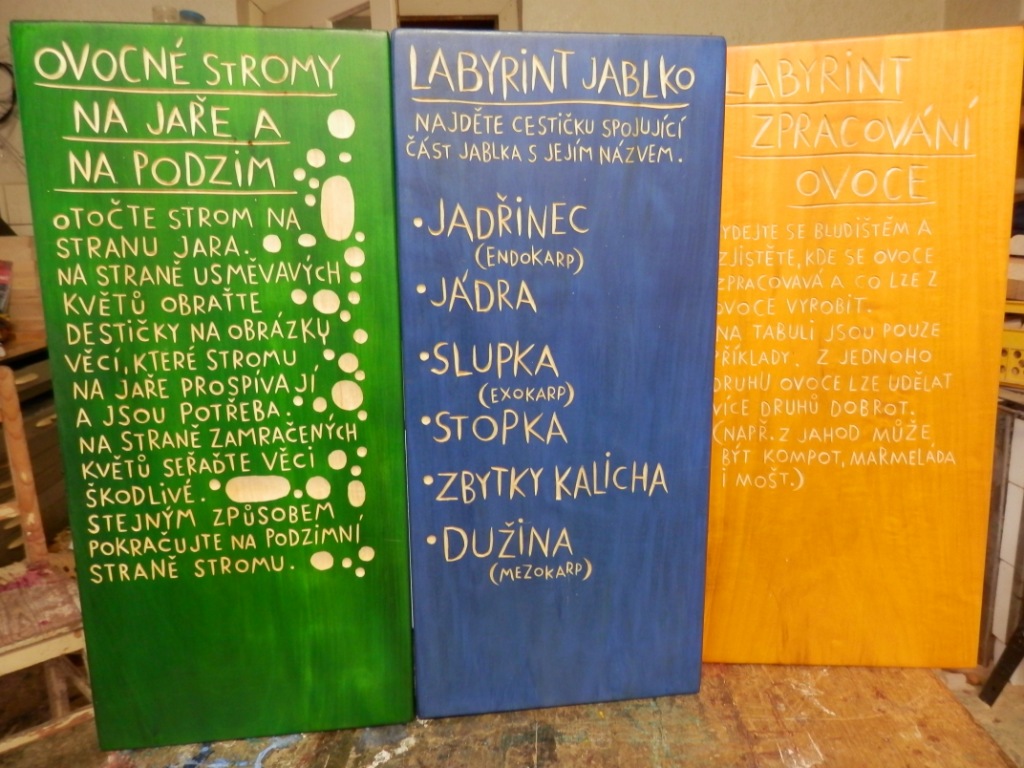 OVOCNÉ STROMY
NA JAŘE A
NA PODZIM
OTOČTE STROM NA
STRANU JARA.
NA STRANĚ USMĚVAVÝCH
KVĚTŮ OBRAŤTE
DESTIČKY NA OBRÁZKY
VĚCÍ, KTERÉ STROMU
NA JAŘE PROSPÍVAJÍ
A JSOU POTŘEBA.
NA STRANĚ ZAMRAČENÝCH
KVĚTŮ SEŘAĎTE VĚCI
ŠKODLIVÉ.
STEJNÝM ZPŮSOBEM
POKRAČUJTE NA PODZIMNÍ
STRANĚ STROMU.
LABYRINT JABLKO
NAJDĚTE CESTIČKU SPOJUJÍCÍ
ČÁST JABLKA S JEJÍM NÁZVEM.
• JADŘINEC
(ENDOKARP)
• JÁDRA
• SLUPKA
(EXOKARP)
• STOPKA
• ZBYTKY KALICHA
• DUŽINA
(MEZOKARP)
LABYRINT
ZPRACOVÁNÍ
OVOCE
YDEJTE SE BLUDIŠTĚM A
ZJISTĚTE, KDE SE OVOCE
ZPRACOVÁVÁ A CO LZE Z
OVOCE VYROBIT.
NA TABULI JSOU POUZE
PŘÍKLADY. Z JEDNOHO
DRUHU OVOCE LZE UDĚLAT
VÍCE DRUHŮ DOBROT.
(NAPŘ. Z JAHOD MŮŽE
BÝT KOMPOT, MARMELÁDA
I MOŠT.)